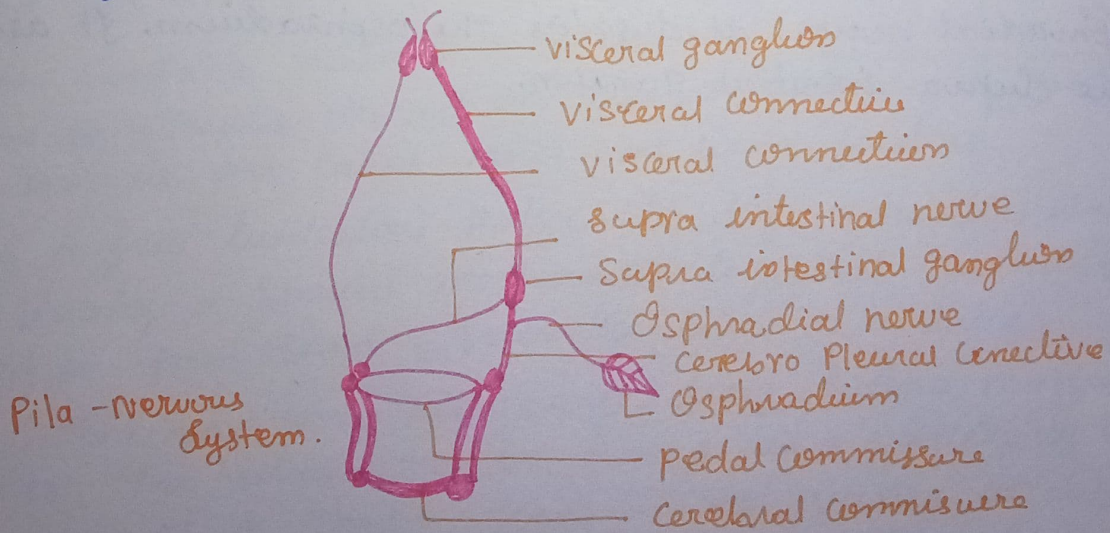 visceral ganglion
visceral connective
visceral connectives
supra intestinal nerve
Supra intestinal ganglion
Osphradial nerve
cerebro Pleural Conective
Osphradium
Pila - Nervous
System.
pedal Commissure
Cerebral commisuere